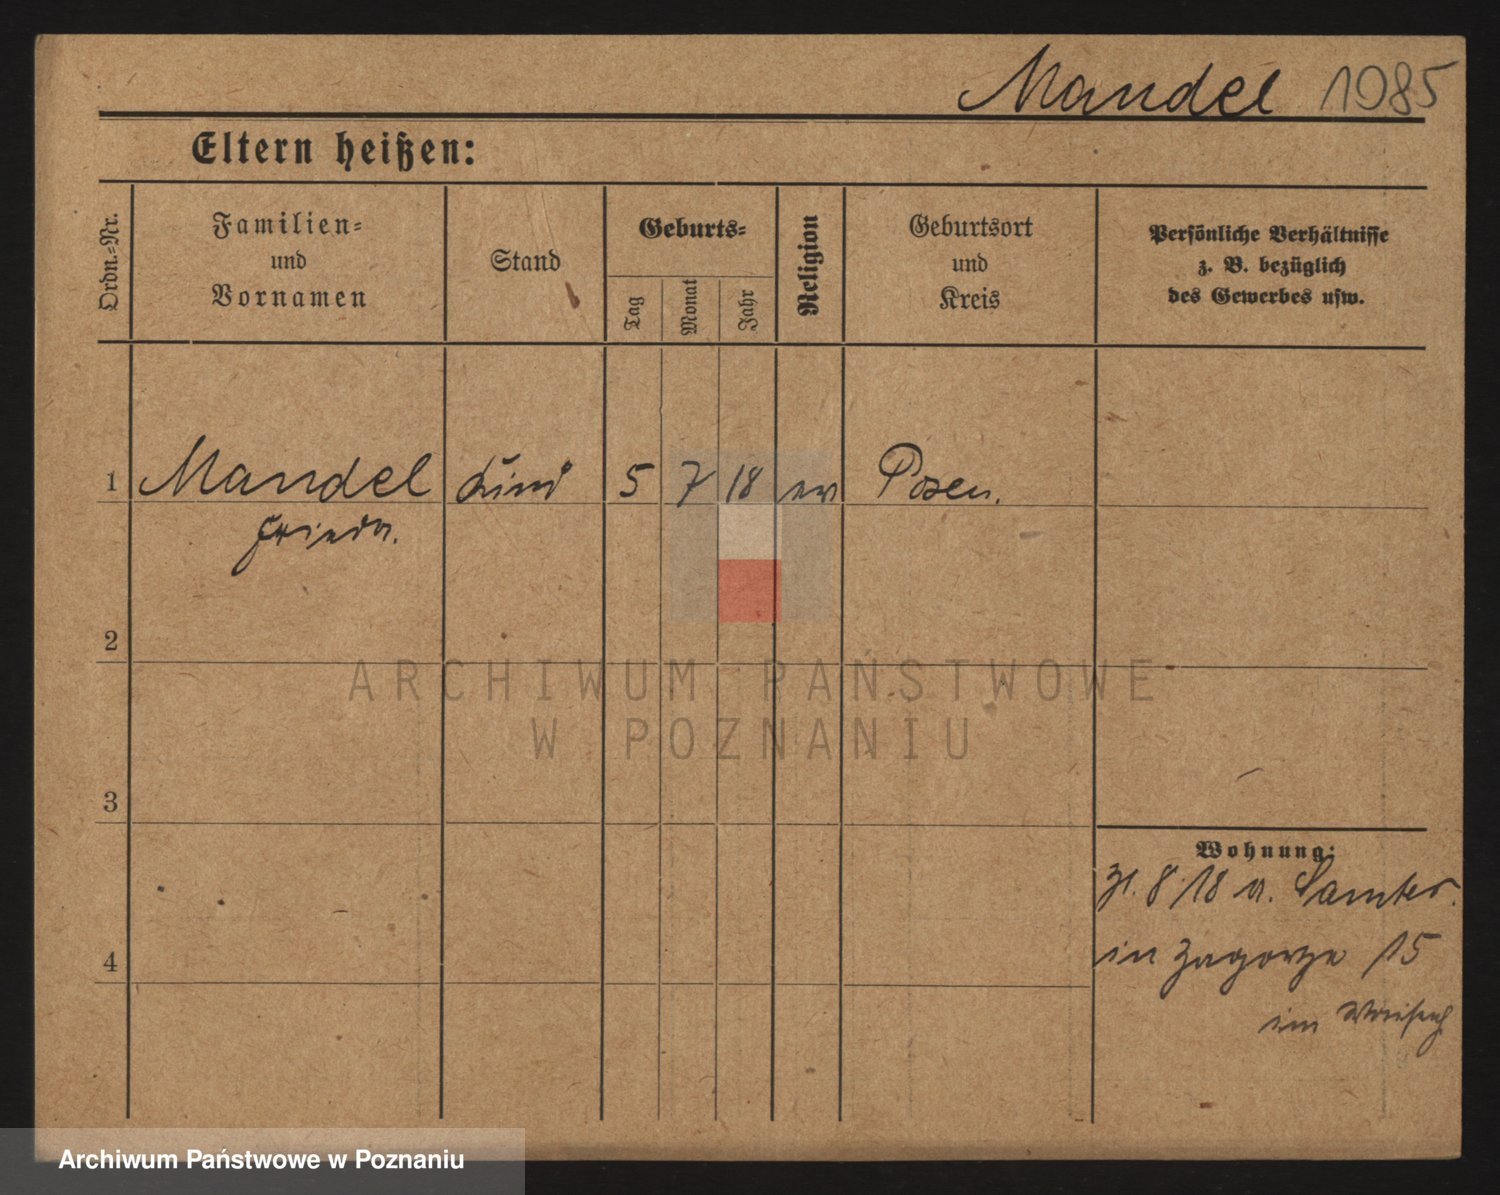 Mandel 1985
Eltern heißen:
Ordn.-Nr.
Familien-
und
Vornamen
Stand
Geburts-
Tag
Monat
Jahr
Religion
Geburtsort
und
Kreis
Persönliche Verhältnisse
z. B. bezüglich
des Gewerbes usw.
1 Mandel Kind 5 7 18 ev Posen.
Frieda.
2
ARCHIWUM PAŃSTWOWE
W POZNANIU
3
Wohnung:
8 18 a. Samter.
4
in Zagorze 15
im
Archiwum Państwowe w Poznaniu